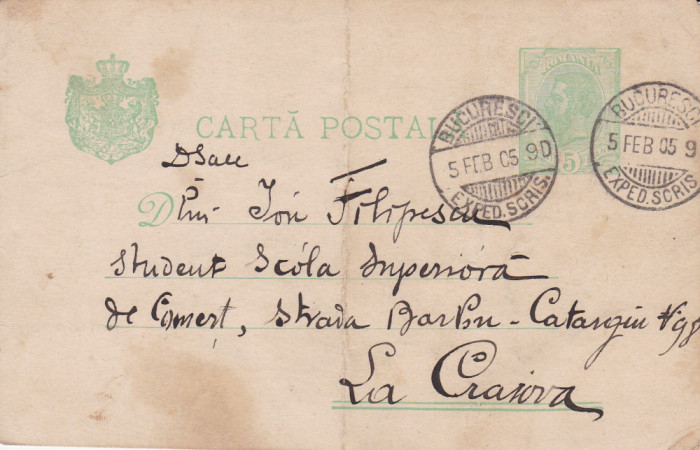 ROMANIA
CARTĂ POSTAL
BUCURESCI
5 FEB 05 9D
EXPED. SCRIS.
BUCURESCI
5 FEB 05 9
EXPED. SCRIS
5
Dsale
Dlui Ión Filipescu
Student Scóla Superióră
de Comerț, Strada Barbu-Catargiu
La Craiova